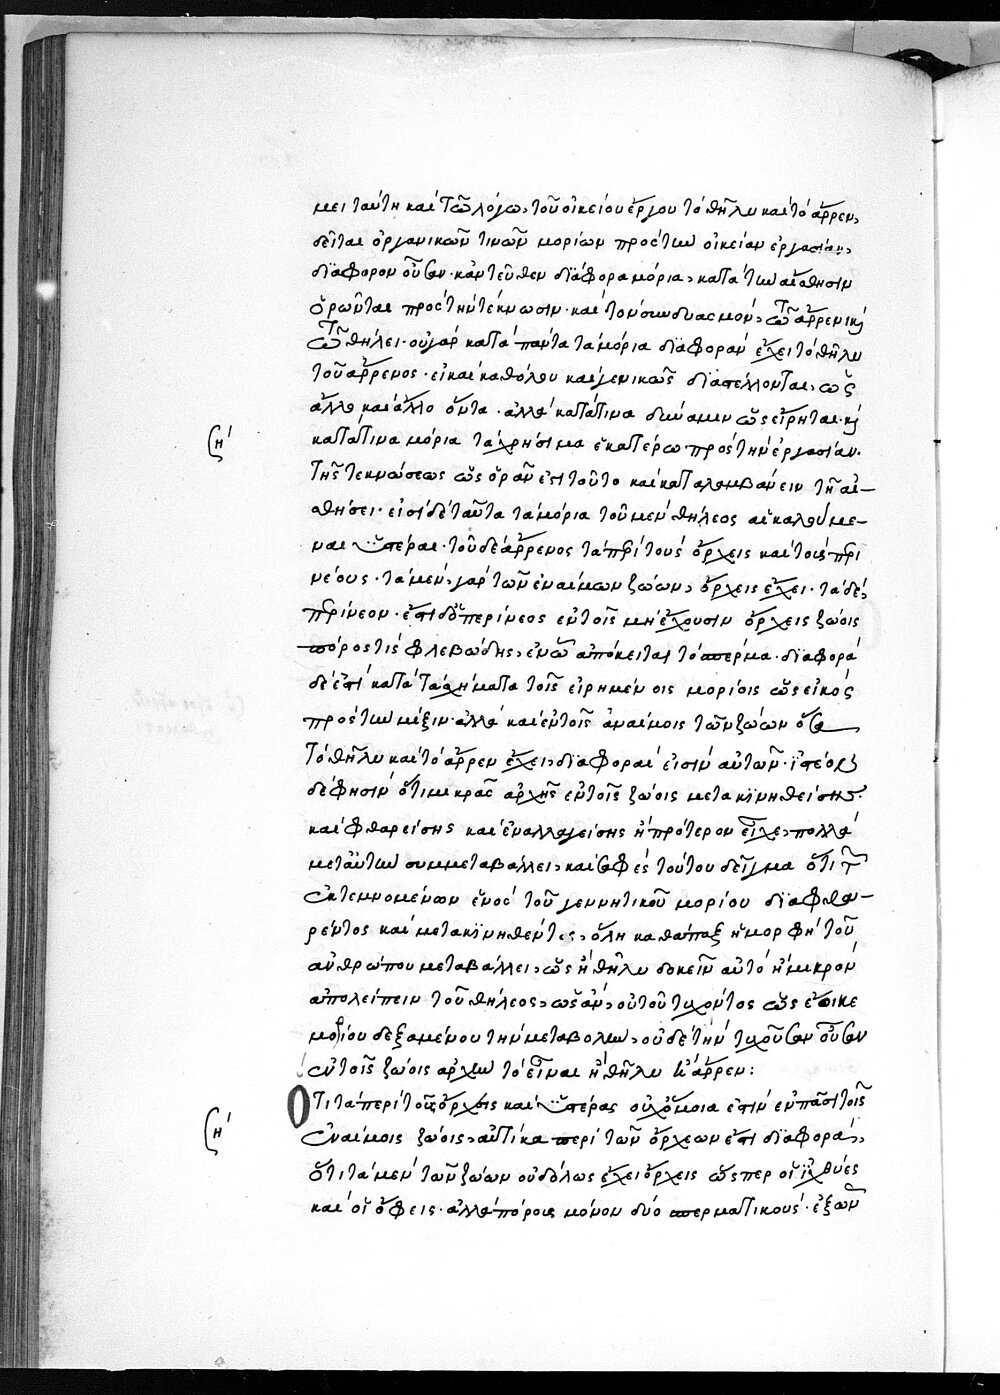 μει ταύτη καὶ τῶ λόγω, τοῦ οἰκείου ἔργου τὸ θῆλυ καὶ τὸ ἄρρεν,
δεῖται ὀργανικῶν τινῶν μορίων πρὸς τὴν οἰκείαν ἐργασίαν,
διάφορον οὖσαν· κἀντεῦθεν διάφορα μόρια, κατὰ τὴν αἴσθησιν
ὁρῶνται πρὸς τὴν τέκνωσιν· καὶ τὸν συνδυασμόν, τῶ ἄρρενι καὶ
τῶ θήλει· οὐ γὰρ κατὰ πάντα τὰ μόρια διαφορὰν ἔχει τὸ θῆλυ
τοῦ ἄρρενος· εἰ καὶ καθόλου καὶ γενικῶς διαστέλλονται, ὡς
ἄλλο καὶ ἄλλο ὄντα· ἀλλὰ κατά τινα δύναμιν ὡς εἴρηται· καὶ
κατά τινα μόρια τὰ χρήσιμα ἑκατέρω πρὸς τὴν ἐργασίαν.
τῆς τεκνώσεως ὡς ὁρᾶν ἐστι τοῦτο καὶ καταλαμβάνειν τῆ αἰ-
σθήσει· εἰσὶ δὲ ταῦτα τὰ μόρια τοῦ μὲν θήλεος αἱ καλούμε-
ναι ὑστέραι· τοῦ δὲ ἄρρενος τὰ περὶ τοὺς ὄρχεις καὶ τοὺς περι
νέους· τὰ μὲν, γὰρ τῶν ἐναίμων ζώων, ὄρχεις ἔχει· τὰ δὲ,
περίνεον· ἔστι δὲ ὁ περίνεος ἐν τοῖς μὴ ἔχουσιν ὄρχεις ζώοις
πόρος τις φλεβώδης, ἐν ὧ ἀπόκειται τὸ σπέρμα· διαφορὰ
δέ ἐστι κατὰ τὰ σχήματα τοῖς εἰρημένοις μορίοις ὡς εἰκὸς
πρὸς τὴν μίξιν· ἀλλὰ καὶ ἐν τοῖς ἀναίμοις τῶν ζώων ὅσα
τὸ θῆλυ καὶ τὸ ἄρρεν ἔχει, διαφοραί εἰσιν αὐτῶν· ἰστέον
δέ φησιν ὅτι μικρᾶς ἀρχῆς ἐν τοῖς ζώοις μετακινηθείσης.
καὶ φθαρείσης καὶ ἐναλλαγείσης ἢ πρότερον εἶχε, πολλὰ
μετ' αὐτὴν συμμεταβάλλει, καὶ σαφὲς τούτου δεῖγμα ὅτι τῶν
ἐκτεμνομένων ἑνὸς τοῦ γεννητικοῦ μορίου διαφθα-
ρέντος καὶ μετακινηθέντος, ὅλη καθάπαξ ἡ μορφὴ τοῦ
ἀνθρώπου μεταβάλλει, ὡς ἢ θῆλυ δοκεῖν αὐτὸ ἢ μικρὸν
ἀπολείπειν τοῦ θήλεος, ὡς ἂν, οὐ τοῦ τυχόντος ὡς ἔοικε
μορίου δεξαμένου τὴν μεταβολὴν, οὐδὲ τὴν τυχοῦσαν οὖσαν
ἐν τοῖς ζώοις ἀρχὴν τὸ εἶναι ἢ θῆλυ ἢ ἄρρεν:
ζη΄
Ὅτι τὰ περὶ τοὺς ὄρχεις καὶ ὑστέρας οὐχ ὅμοια ἐστὶν ἐν πᾶσι τοῖς
ἐναίμοις ζώοις, αὐτίκα περὶ τῶν ὄρχεων ἔστι διαφορὰ,
ὅτι τὰ μὲν τῶν ζώων οὐδόλως ἔχει ὄρχεις ὥσπερ οἱ ἰχθύες
καὶ οἱ ὄφεις· ἀλλὰ πόρους μόνον δύο σπερματικούς· ἐξ ὧν
ζη΄